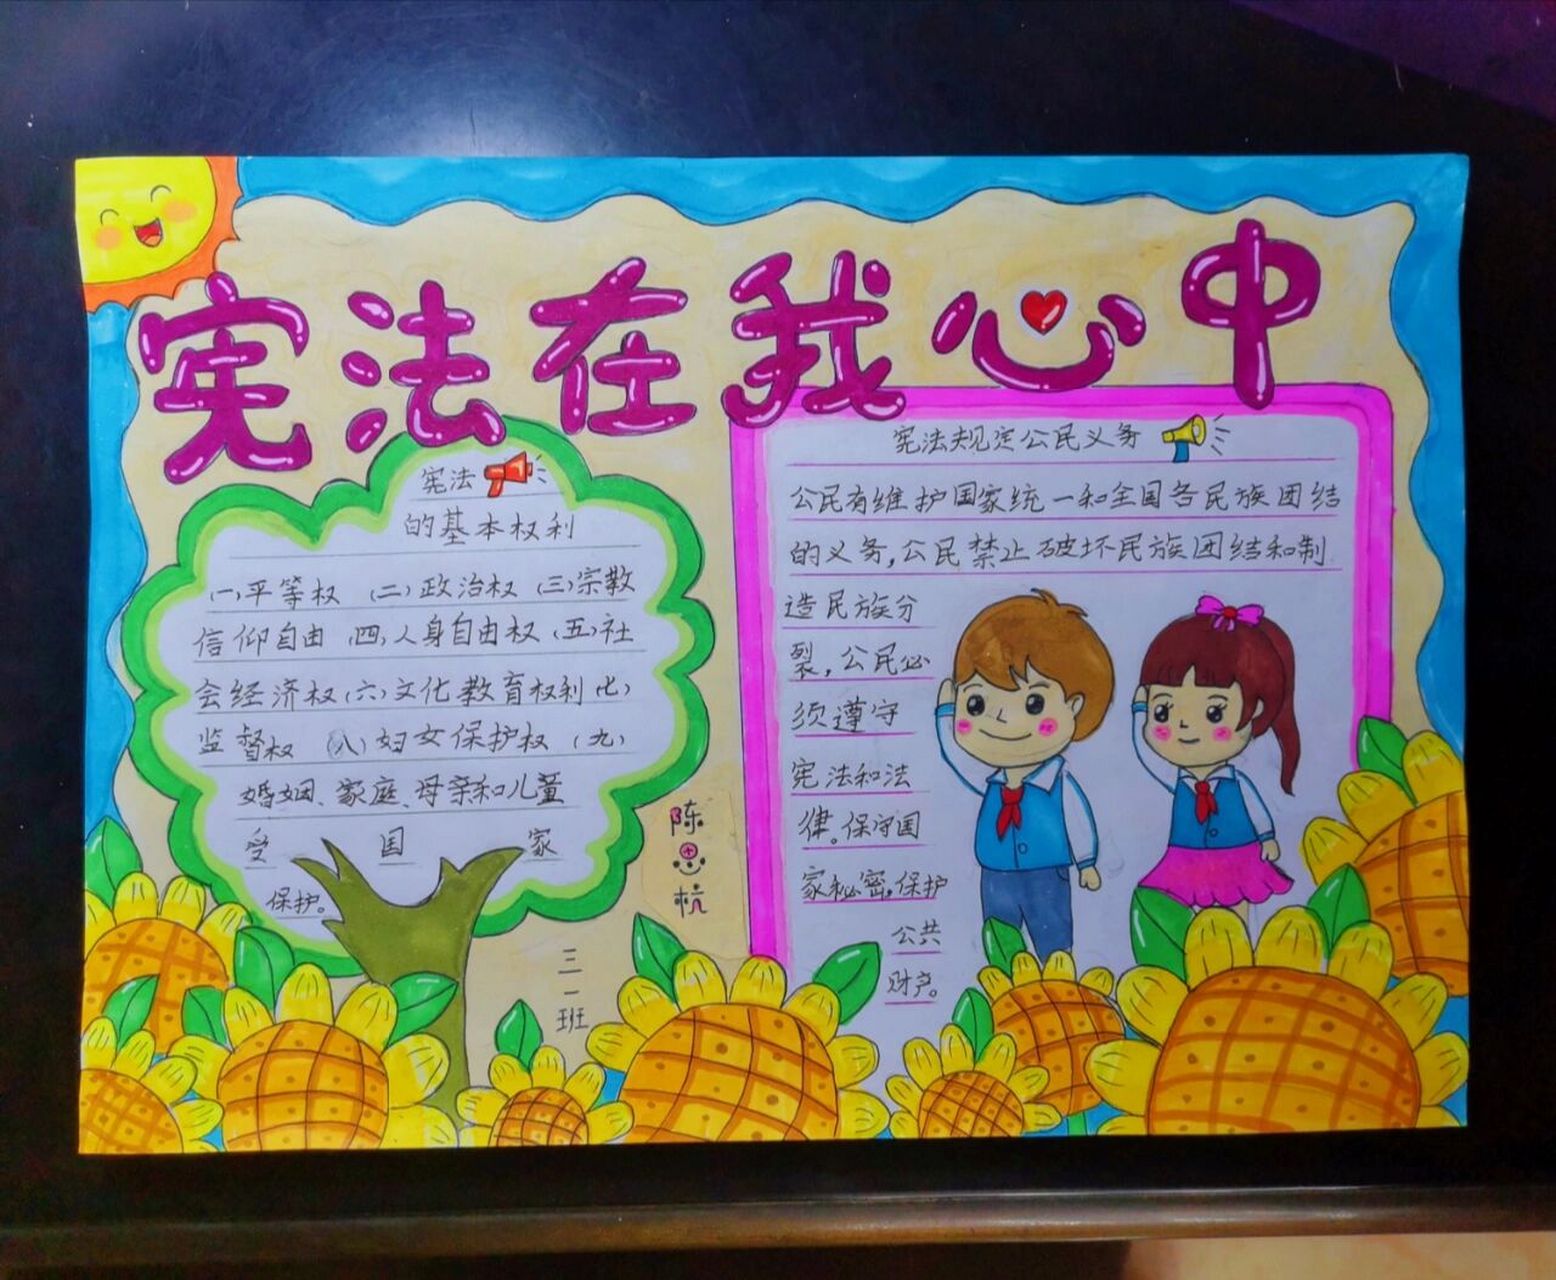 宪法在我心中
宪法
的基本权利
(一)平等权 (二)政治权 (三)宗教
信仰自由 (四)人身自由权 (五)社
会经济权(六)文化教育权利(七)
监督权 (八)妇女保护权 (九)
婚姻、家庭、母亲和儿童
受 国 家
保护。
陈思杭
三一班
宪法规定公民义务
公民有维护国家统一和全国各民族团结
的义务,公民禁止破坏民族团结和制
造民族分
裂,公民必
须遵守
宪法和法
律。保守国
家秘密,保护
公共
财产。